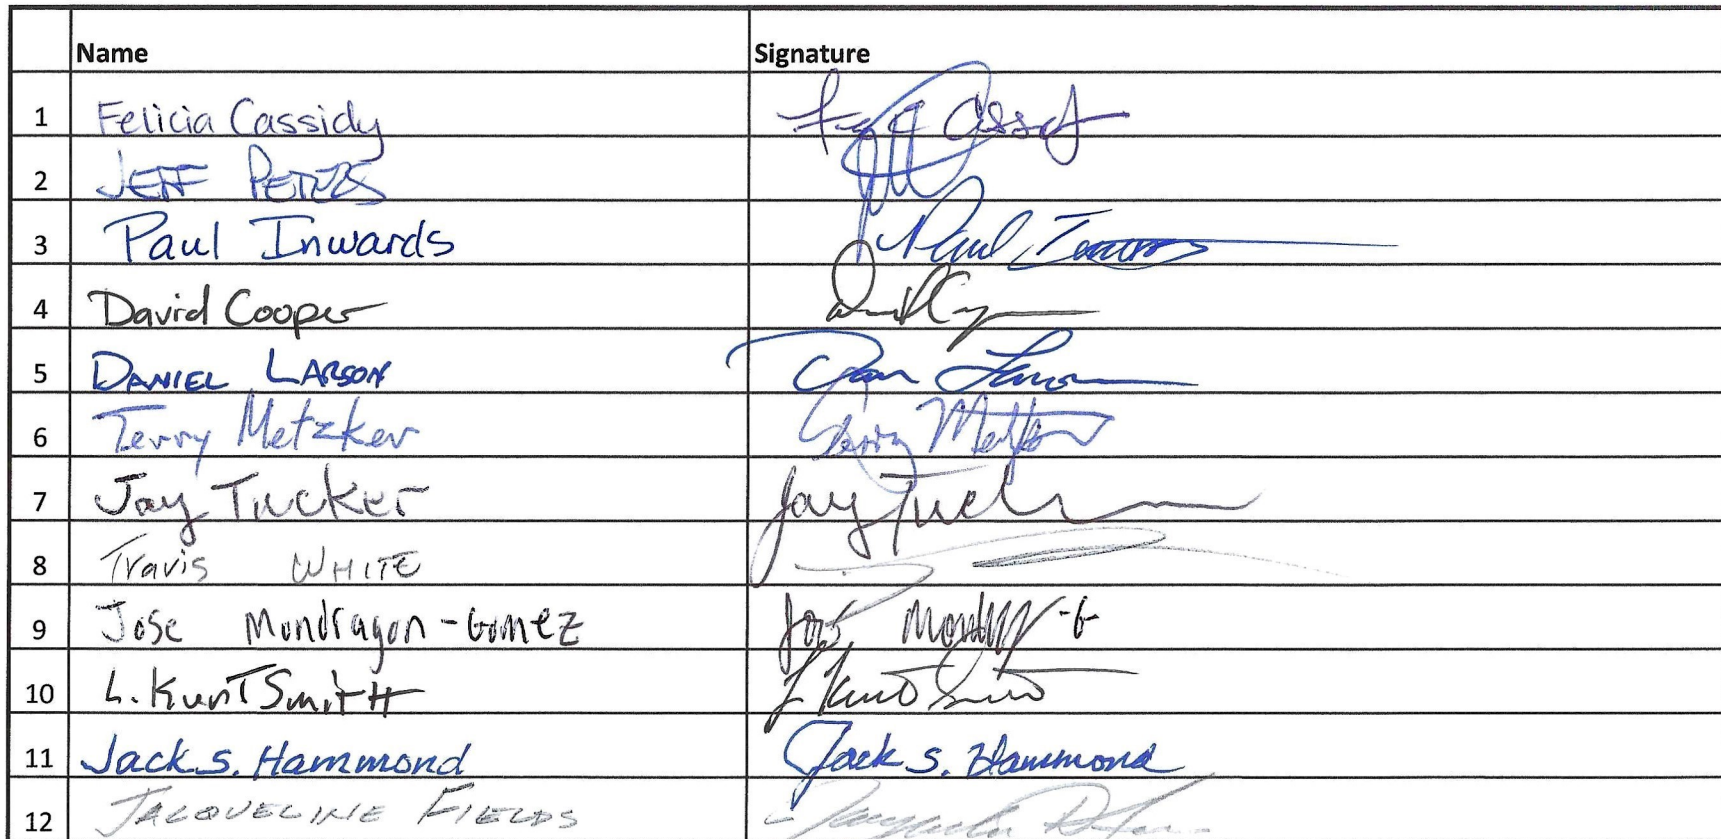 Name Signature
1 Felicia Cassidy
2 JEFF PETERS
3 Paul Inwards Paul Inwards
4 David Cooper
5 DANIEL LARSON Dan Larson
6 Terry Metzker Terry Metzker
7 Jay Tucker Jay Tucker
8 Travis WHITE
9 Jose Mondragon-Gomez
10 L. Kurt Smith L Kurt Smith
11 Jack S. Hammond Jack S. Hammond
12 JACQUELINE FIELDS